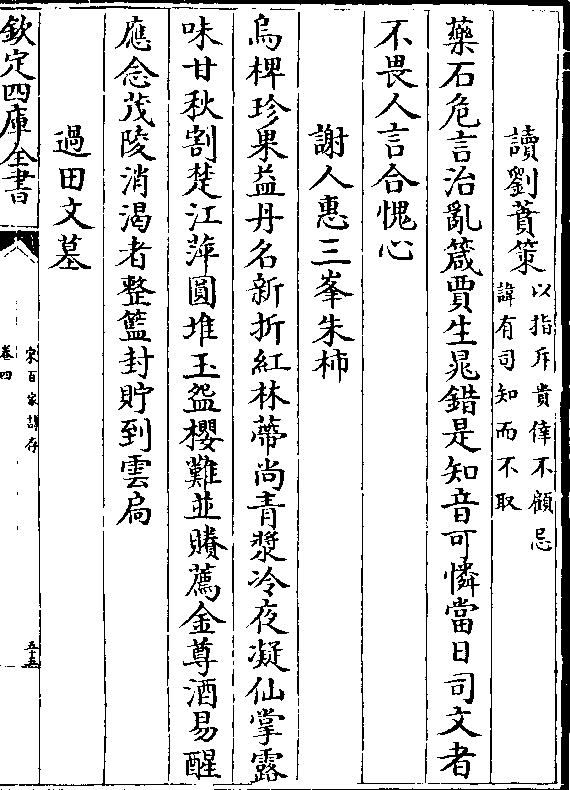 讀劉蕡策以指斥貴倖不顧忌
諱有司知而不取
藥石危言治亂箴賈生晁錯是知音可憐當日司文者
不畏人言合愧心
謝人惠三峯朱柿
烏椑珍果益丹名新折紅林蔕尚青漿冷夜凝仙掌露
味甘秋割楚江萍圓堆玉盌櫻難並賸薦金尊酒易醒
應念茂陵消渴者整籃封貯到雲扃
過田文墓
欽定四庫全書
宋百家詩存
卷四